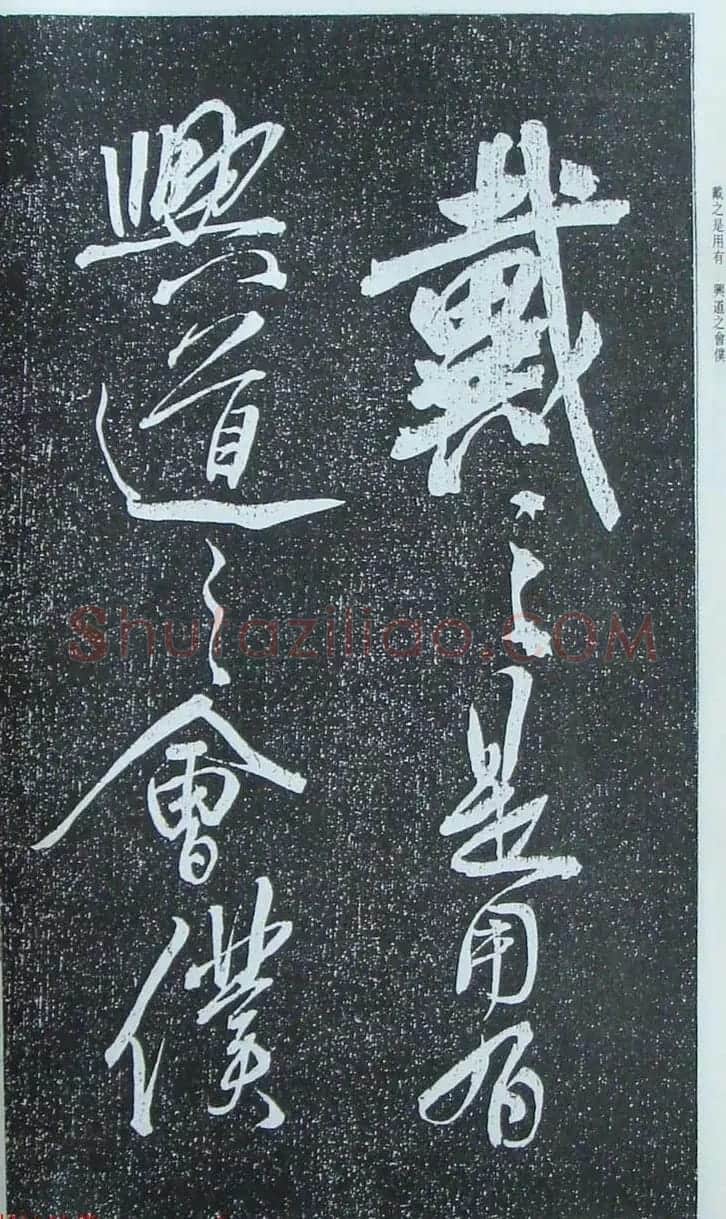 戴之是用有
興道之會僕
戴之是用有 興道之會僕
Shufaziliao.COM